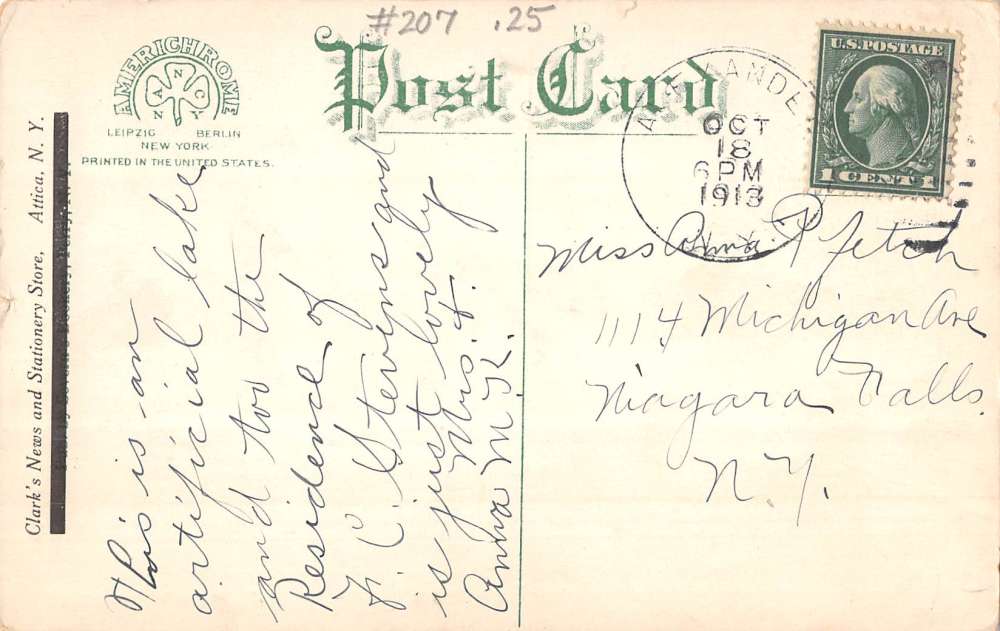 #207 .25
AMERICHROME
NANCY
LEIPZIG BERLIN
NEW YORK
PRINTED IN THE UNITED STATES.
Post Card
U.S. POSTAGE
1 CENT 1
OCT
18
6 PM
1913
N.Y.
Clark's News and Stationery Store, Attica, N. Y.
This is an
artificial lake
and too the
Residence of
F. C. Stevens and
is just lovely
Anna M. K.
Miss Anna Pfetch
1114 Michigan Ave
Niagara Falls
N.Y.